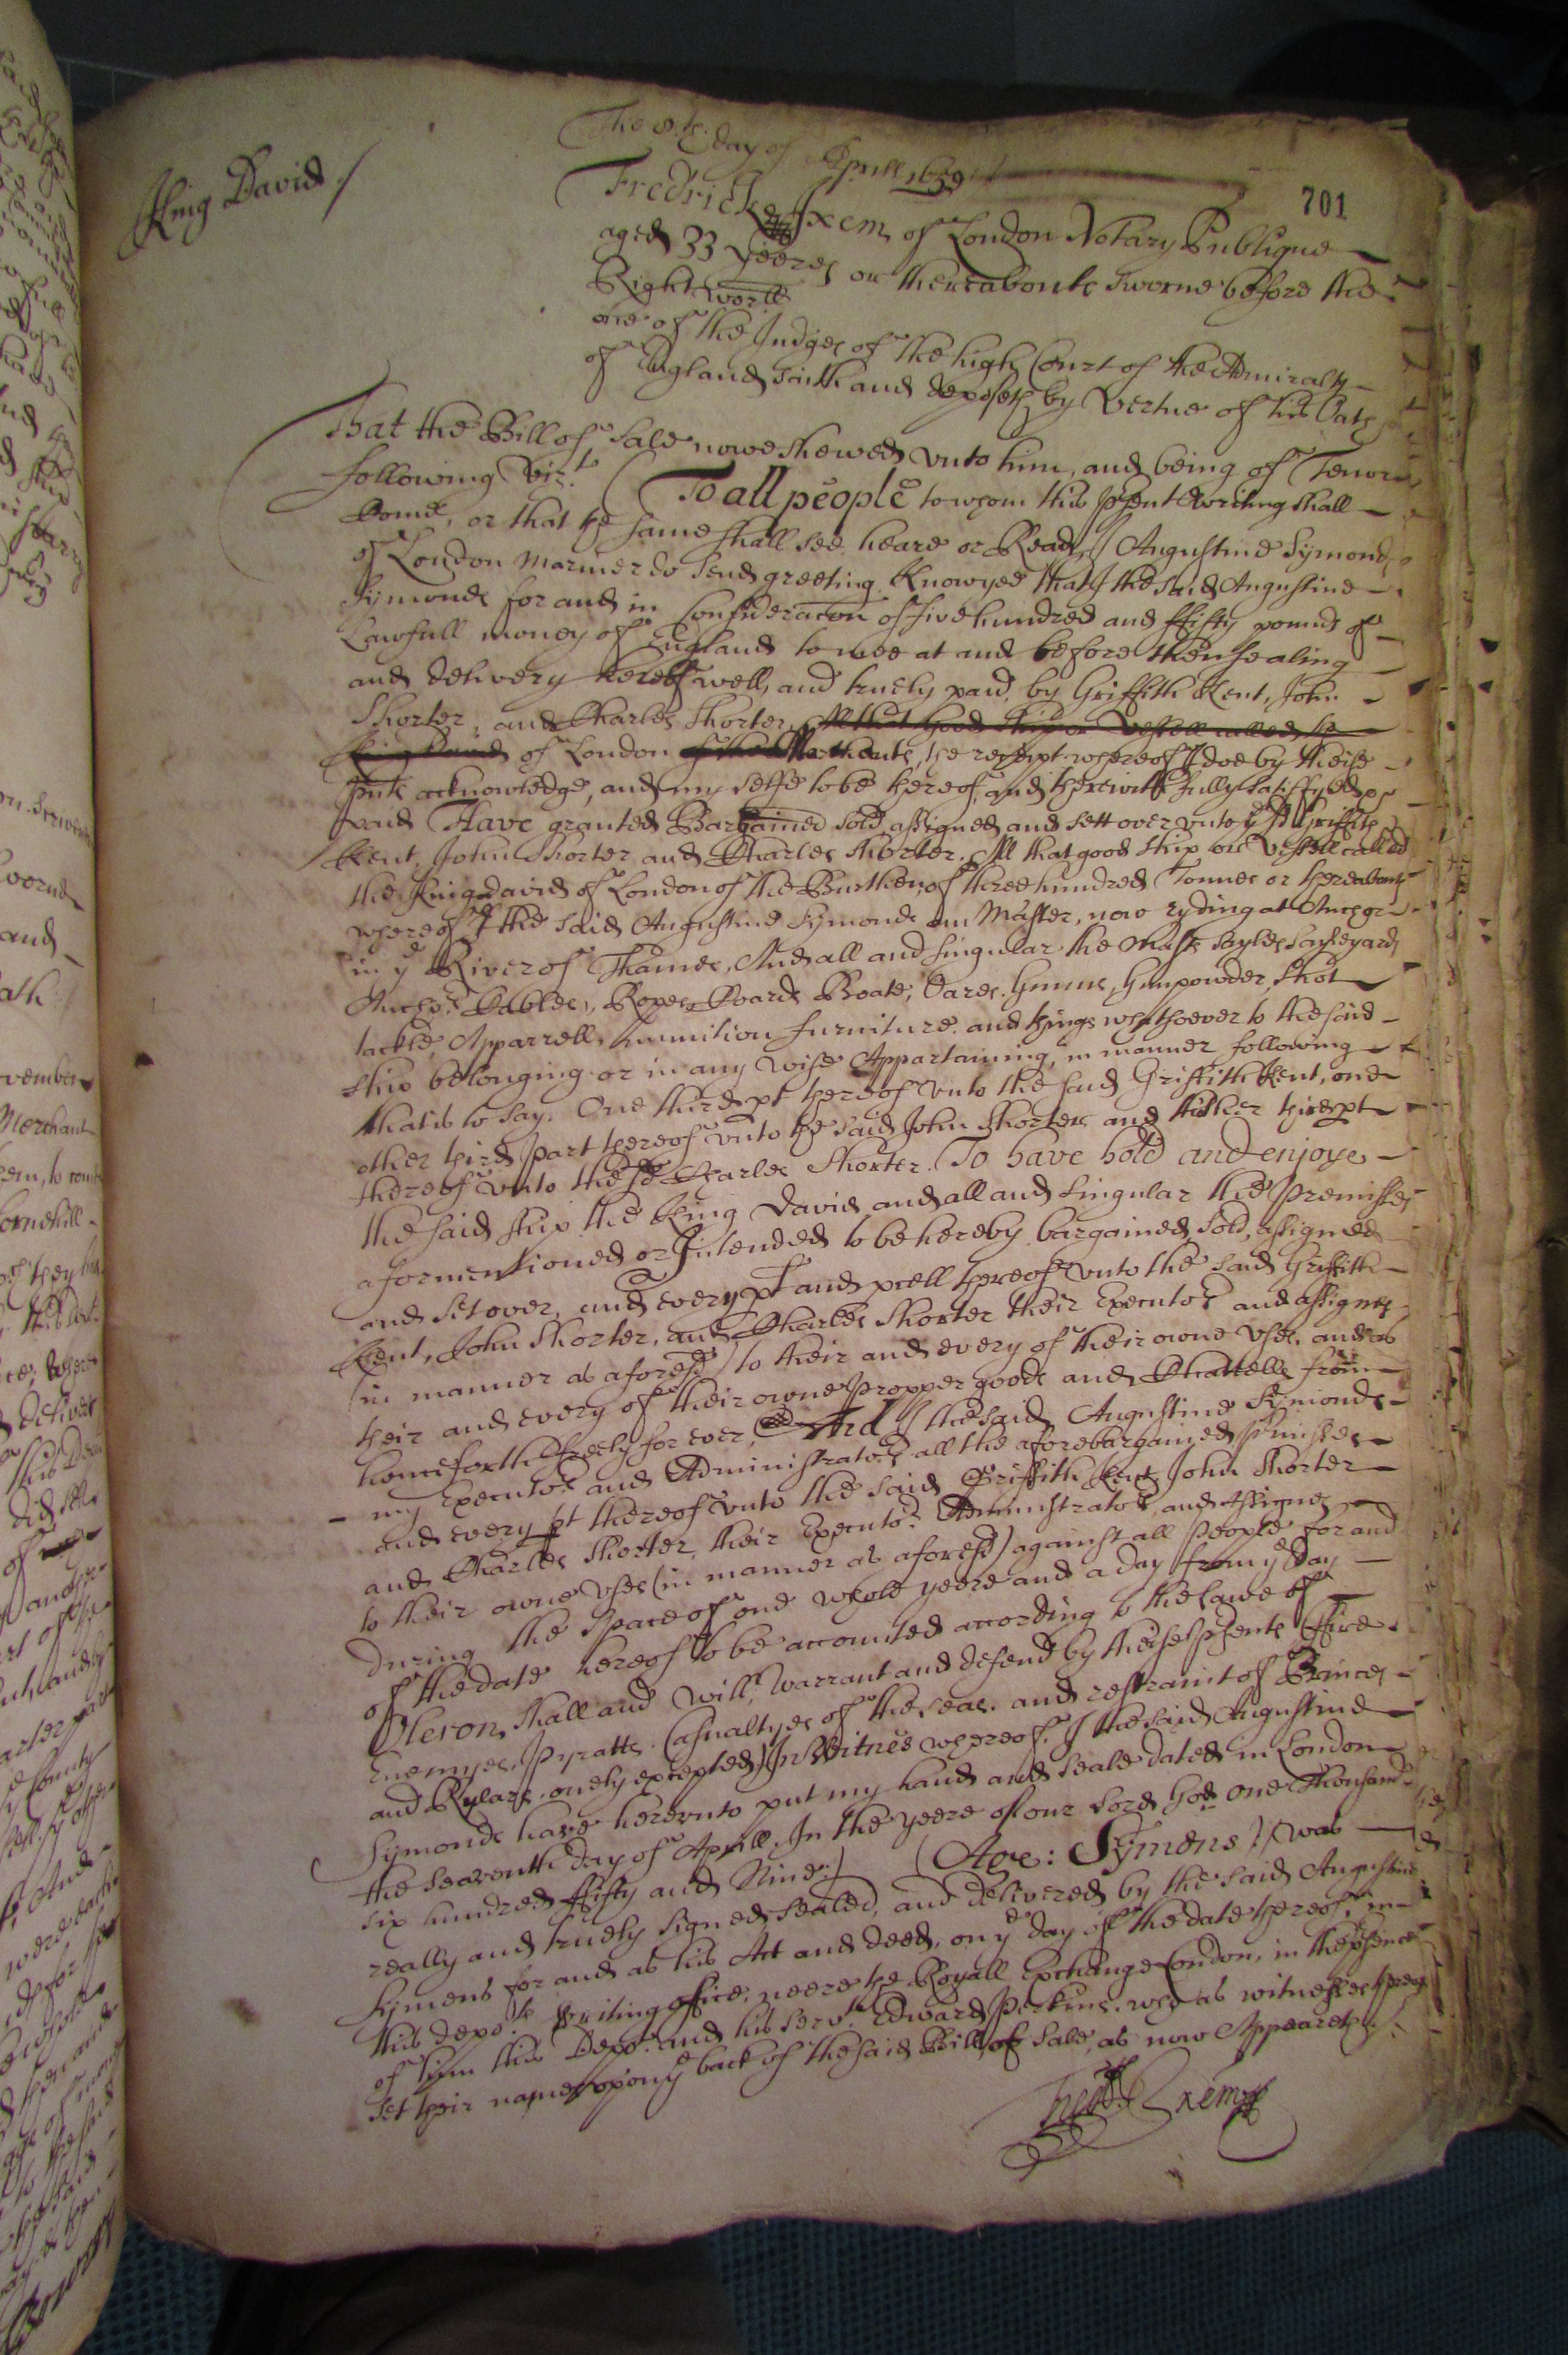 King David /
The 8th day of Aprill 1659
701
Fredricke Ixem of London Notary Publique
aged 33 yeeres or thereaboute sworne before the
Right worll
one of the Judges of the high Court of the Admiralty
of England saith and deposeth by vertue of his Oath
That the Bill of sale nowe shewed vnto him, and being of Tenor
following vizt. To all people to whom this pſent writing shall
Come, or that the same shall see heare or Read, I Augustine Symonds
of London Marriner do send greeting. Knowyee that I the said Augustine
Symonds for and in Consideracon of five hundred and ffifty pounds of
Lawfull money of England to mee at and before then sealing
and delivery hereof well, and truely paid by Griffith Kent, John
Shorter, and Charles Shorter, All that good ship or Vessell called the
King David of London Merchants, the receipt whereof I doe by theise
pſnts acknowledge, and my selfe to be hereof, and therewith fully satisffyed &
paid Have granted Bargained sold, assigned and sett over vnto ye sd Griffith
Kent, John Shorter and Charles Shorter. All that good ship or Vessell called
the King david of London of the Burthen of three hundred Tonnes or thereabouts
whereof I the said Augustine Symonds am Master, now ryding at Anchor
in ye River of Thames, And all and singular the Masts sayles sayleyards
Anchors Cables, Ropes Coards Boate, Oares. Gunns, Gunpowder, shot
tackle, Apparrell, munition furniture, and things whatsoever to the said
ship belonging or in any wise Appartaining, in manner following
that is to say. One third pt thereof vnto the said Griffith Kent, one
other third part thereof vnto the said John Shorter, and thother third pt
thereof vnto the sd Charles Shorter. To have hold and enjoye
the said ship the King David and all and singular the premisses
aformentioned or Intended to be hereby bargained, sold, assigned
and set over, and every pt and pcell thereof vnto the said Griffith
Kent, John Shorter, and Charles Shorter their Executors and assignes
(in manner as aforesd) to their and every of their owne vses. and as
their and every of their owne propper goods and Chattells from
henceforth freely for ever, And I the said Augustine Symonds
my Executors and Administrators all the aforebargained pmisses
and every pt thereof vnto the said Griffith Kent John Shorter
and Charles Shorter, their Executors Administrators and Assignes
to their owne vses (in manner as aforesd) against all people for and
during the space of one whole yeere and a day from ye day
of the date hereof to be accounted according to the lawe of
Oleron, shall and will, warrant and defend by these pſents (ffire
Enemyes, pyratts. Casualtyes of the seas. and restraint of Princes
and Rulars. onely excepted) In Witnes whereof. I the said Augustine
Symonds have herevnto put my hand and seale dated in London
the seaventh day of Aprill. In the yeere of our Lord God one Thousand
six hundred ffifty and Nine. (Age: Symens // was
really and truely signed, sealed, and delivered by the said Augustine
Symens for and as his Act and deed, on ye day of the date thereof, in
this depots writing office, neere the Royall Exchange London, in the pſence
of him this Depot. and his servt. Edward Perkins. who as witnesses thereof
set their names vpon ye back of the said Bill of sale, as now Appeareth.
Fred: Ixem